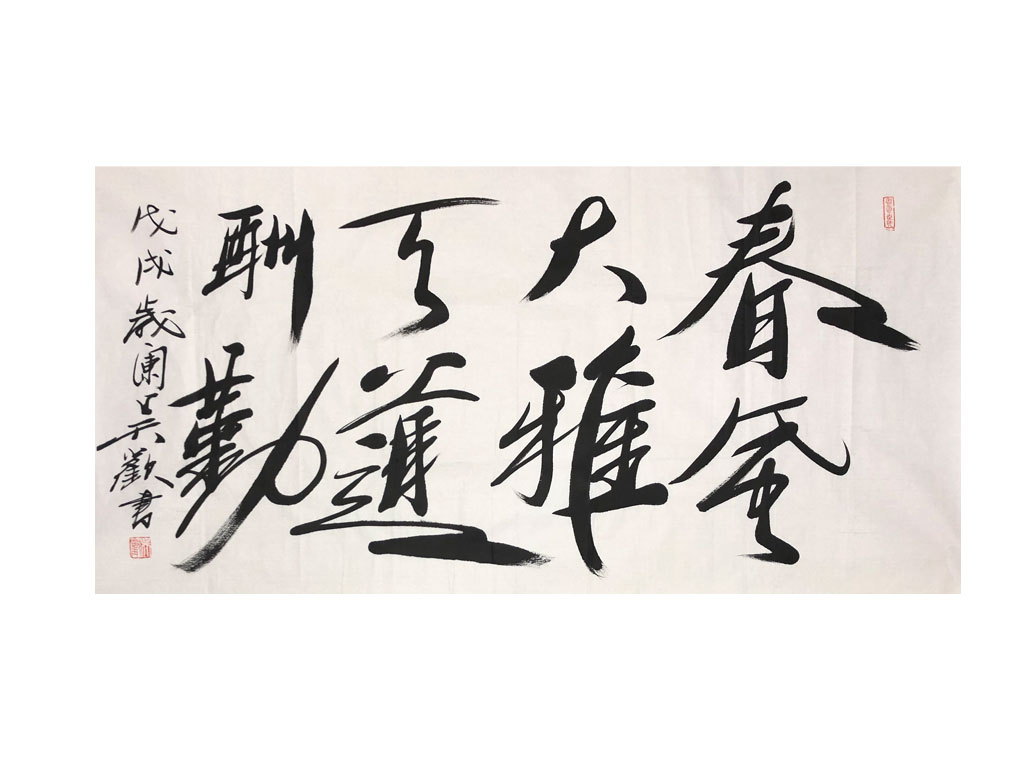 春風
大雅
天道
酬勤
戊戌歲闌吳歡書